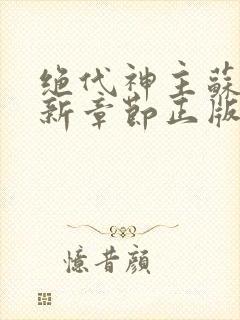 绝代神主蘇
新章節正版
憶昔顔